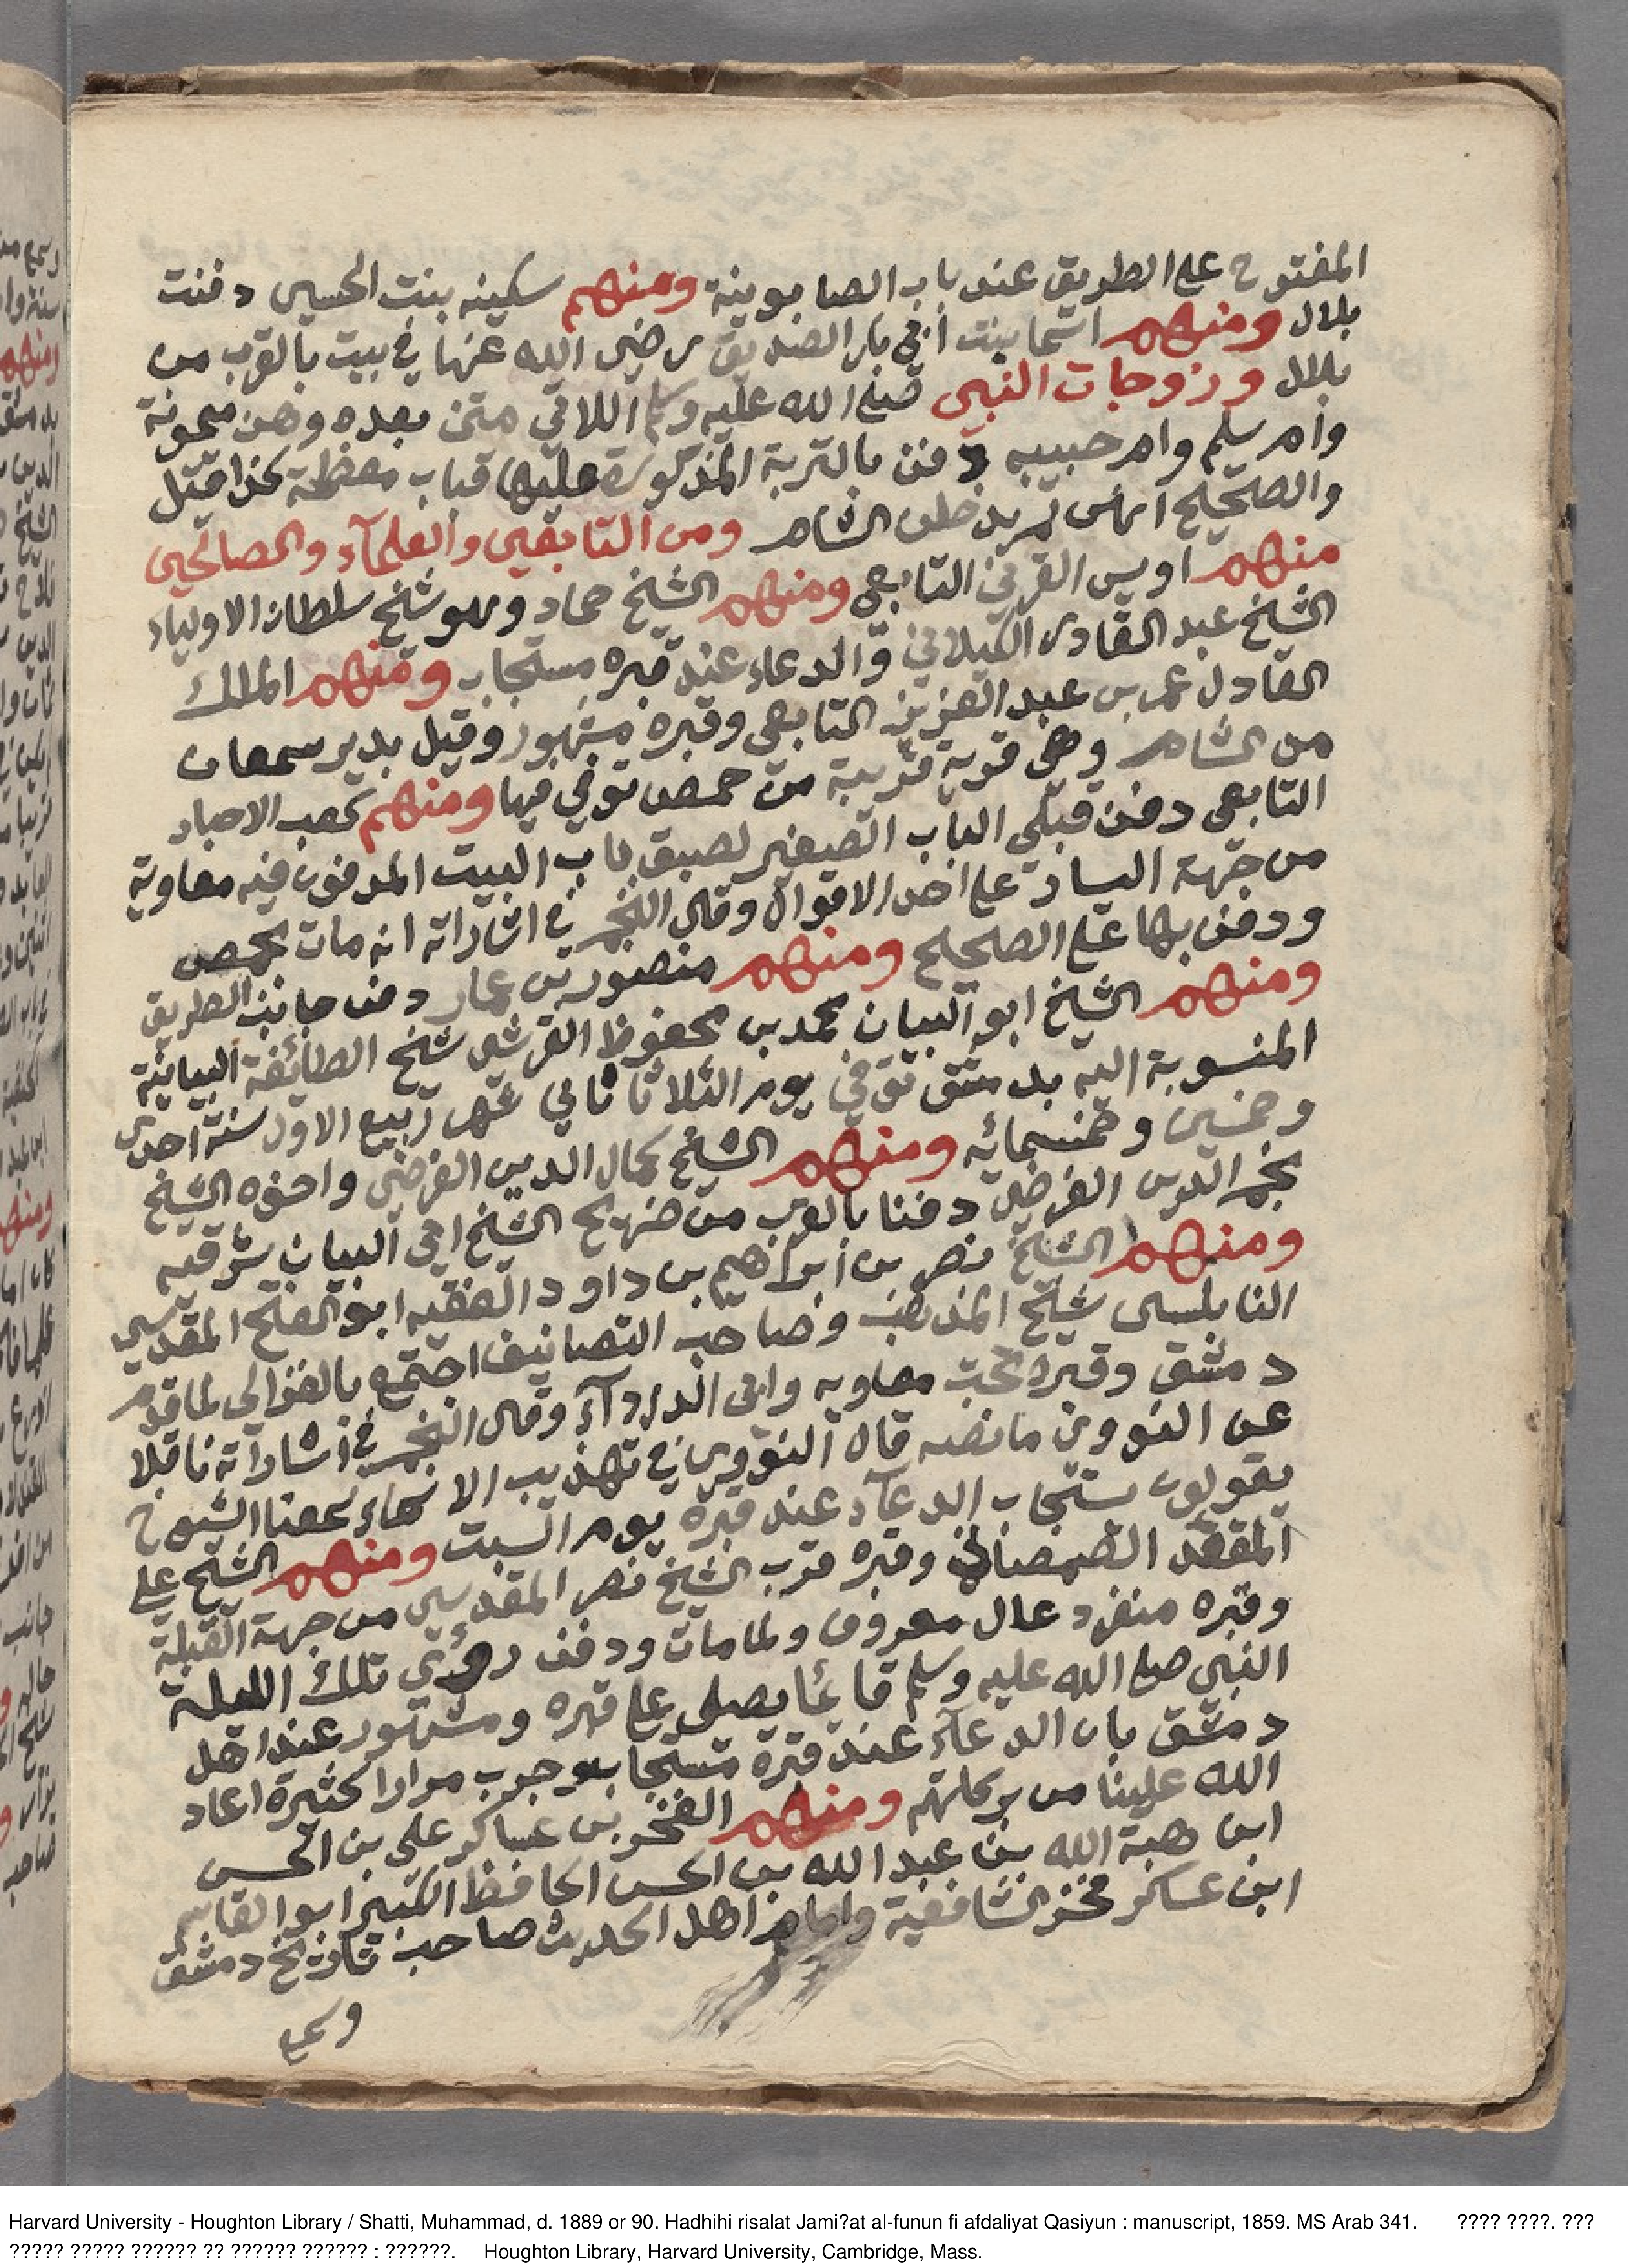 المفتوح على الطريق عند باب الصابونية ومنهم سكينه بنت الحسين دفنت
بلال ومنهم اسما بنت أبي بكر الصديق رضي الله عنها في بيت بالقرب من
بلال وزوجات النبي صلى الله عليه وسلم اللاتي متن بعده وهن ميمونة
وام سلم وام حبيبه دفن بالتربة المذكورة عليها قباب معظمة كذا قيل
والصحيح انهن لم يدخلن الشام ومن التابعين والعلمآء والصالحين
منهم اويس القرني التابعي ومنهم الشيخ حماد وهو شيخ سلطان الاولياء
الشيخ عبد القادر الكيلاني والدعاء عند قبره مستجاب ومنهم الملك
العادل عمر بن عبد العزيز التابعي وقبره مشهور وقيل بدير سمعان
من الشام وهي قرية قريبة من حمص توفي فيها ومنهم كعب الاحبار
التابعي دفن قبلي الباب الصغير لصيق باب البيت المدفون فيه معاوية
من جهة اليسار على احد الاقوال وقال النجم في اشاراته انه مات بحمص
ودفن بها على الصحيح ومنهم منصور بن عمار دفن جانب الطريق
ومنهم الشيخ ابو البيان محمد بن محفوظ القرشي شيخ الطائفة البيانية
المنسوبة اليه بدمشق توفي يوم الثلاثا ثاني شهر ربيع الاول سنة احدى
وخمسين وخمسمائه ومنهم الشيخ كمال الدين الفرضي واخوه الشيخ
نجم الدين الفرضي دفنا بالقرب من ضريح الشيخ ابي البيان شرقيه
ومنهم الشيخ نصر بن ابراهيم بن داود الفقيه ابو الفتح المقدسي
النابلسي شيخ المذهب وصاحب التصانيف اجتمع بالغزالي لما قدم
دمشق وقبره تحت معاويه وابي الدردآء وقال النجم في اشاراته ناقلا
عن النووي ما نصه قال النووي في تهذيب الاسماء سمعنا الشيوخ
يقولون يستجاب الدعآء عند قبره يوم السبت ومنهم الشيخ علي
المقعد الصمصاني وقبره قرب الشيخ نصر المقدسي من جهة القبلة
وقبره منفرد عال معروف ولما مات ودفن رؤي تلك الليلة
النبي صلى الله عليه وسلم قائما يصلي على قبره ومشهور عند اهل
دمشق بان الدعآء عند قبره مستجاب وجرب مرارا كثيرة اعاد
الله علينا من بركاتهم ومنهم الفخر بن عساكر علي بن الحسن
ابن هبة الله بن عبد الله بن الحسن الحافظ الكبير ابو القاسم
ابن عساكر فخر الشافعية وامام اهل الحديث صاحب تاريخ دمشق
وسمع
Harvard University - Houghton Library / Shatti, Muhammad, d. 1889 or 90. Hadhihi risalat Jami?at al-funun fi afdaliyat Qasiyun : manuscript, 1859. MS Arab 341. ???? ????. ???
????? ????? ?????? ?? ?????? ?????? : ??????. Houghton Library, Harvard University, Cambridge, Mass.